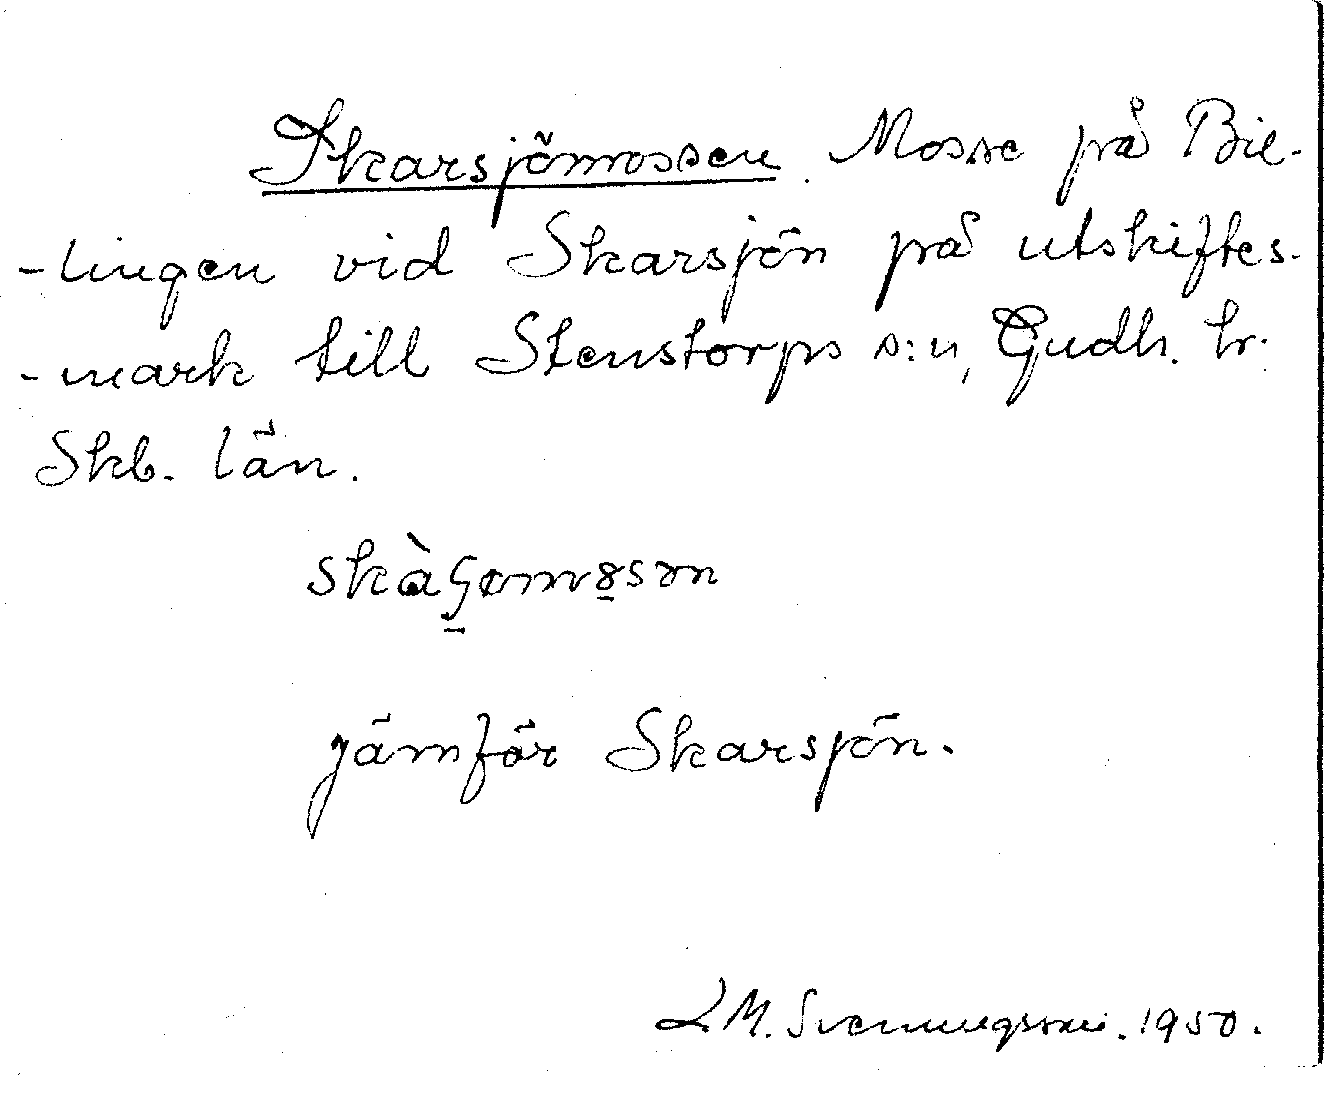 Skarsjömossen. Mosse på Bil-
-lingen vid Skarsjön på utskiftes-
-mark till Stenstorps s:n, Gudh. hr.
Skb. län.
jämför Skarsjön.
L M. Svenungsson. 1950.